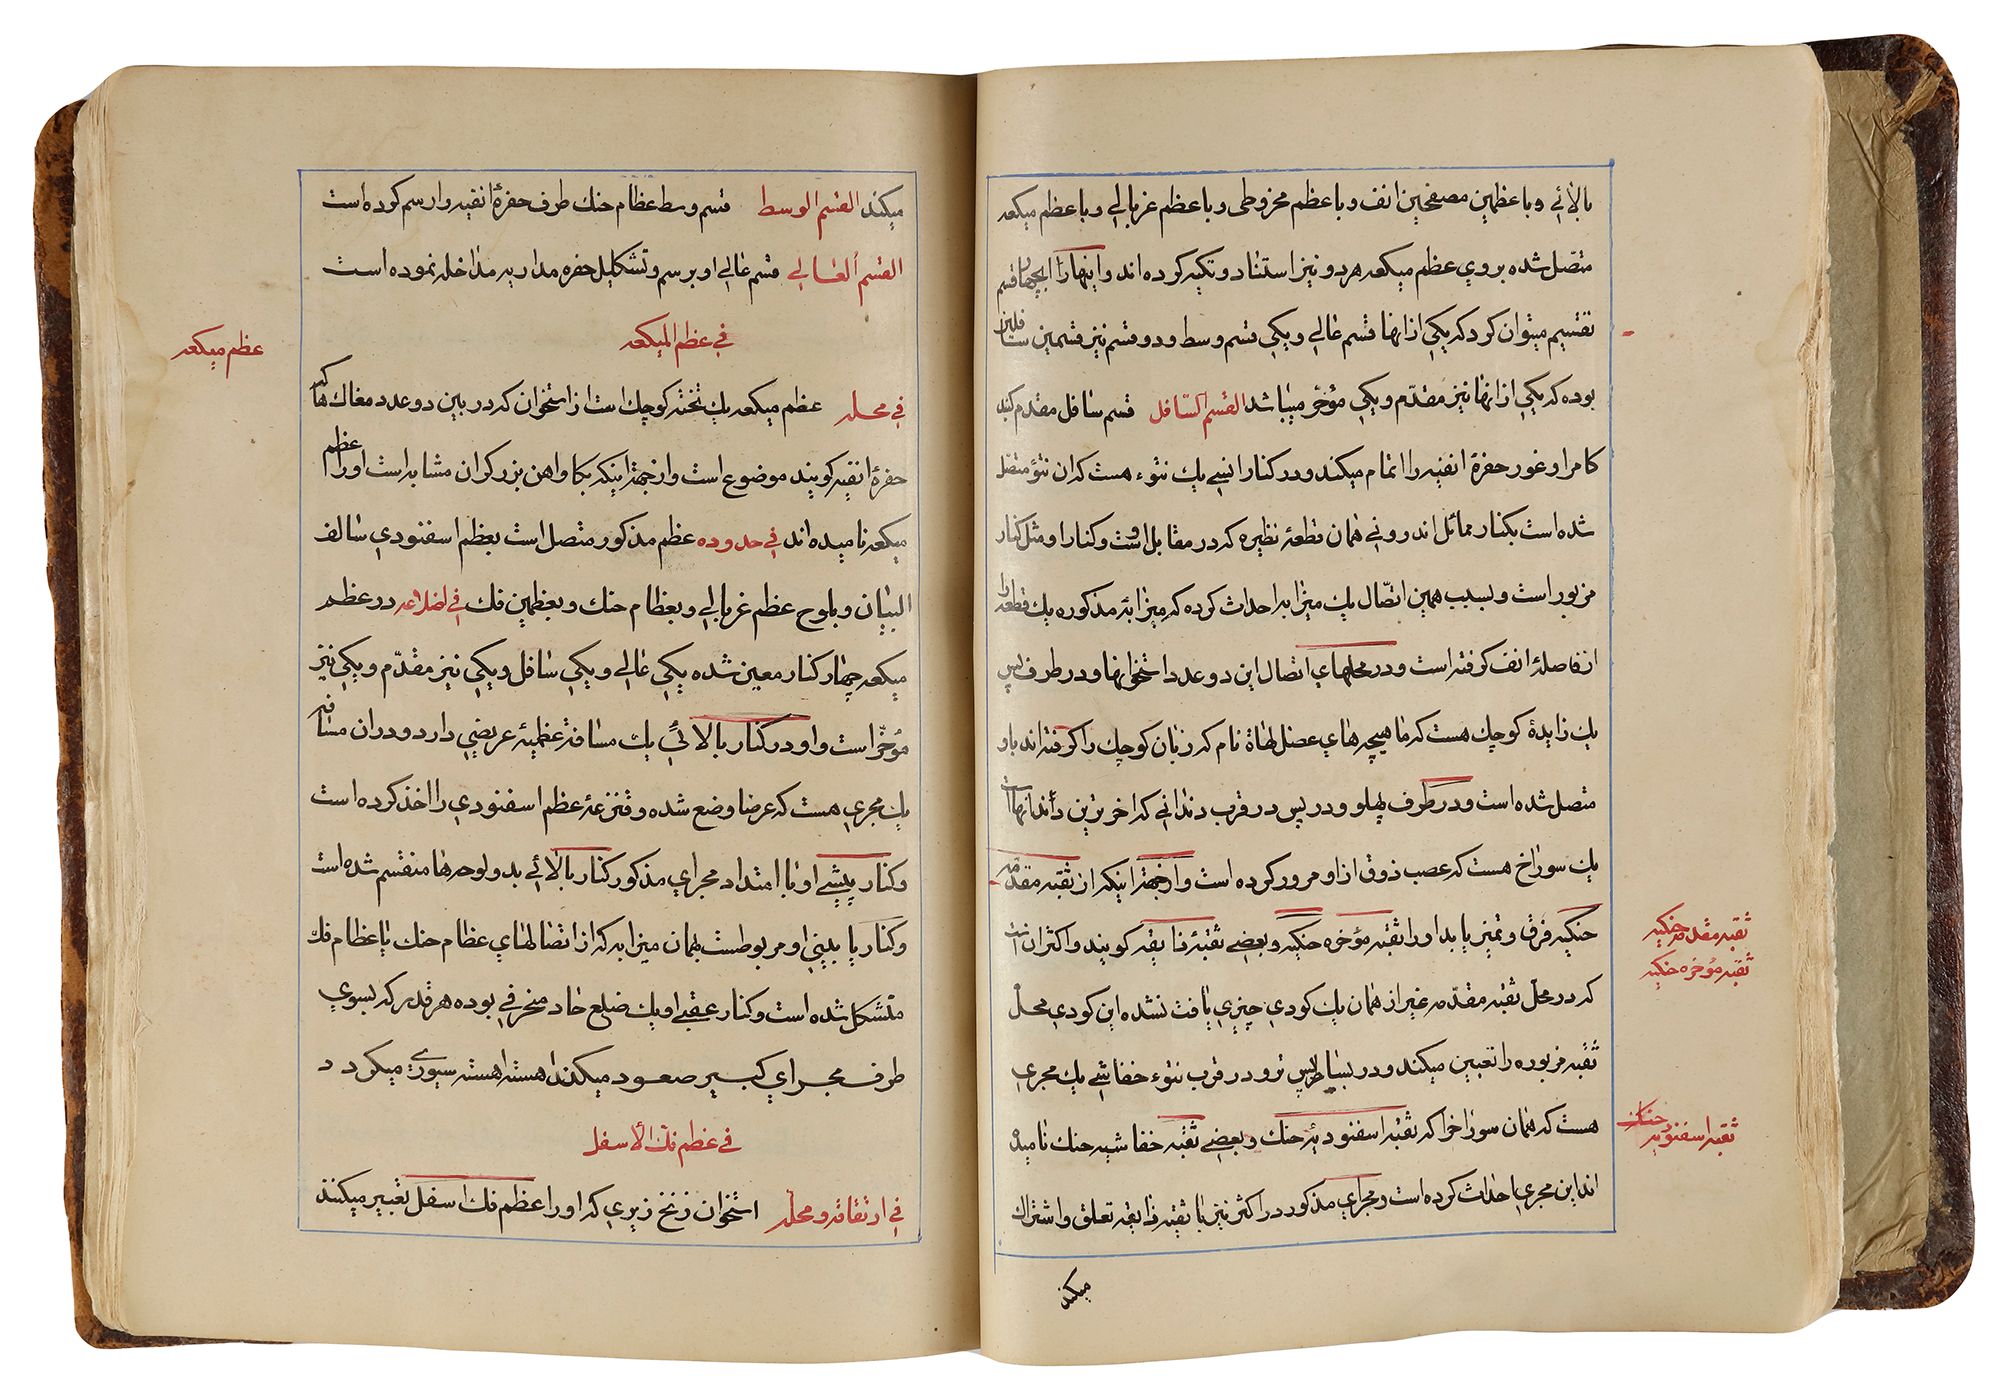 بالائي وبا عظمين مصفحين انف وبا عظم مخروطی وبا عظم غربالی وبا عظم میکعه
متصل شده بروي عظم میکعه هردو نیز استناد و تکیه کرده اند واینهارا بچهار قسم
تقسیم میتوان کرد که یکی ازانها قسم عالی ویکی قسم وسط ودو قسم نیز قسمین سافلین
بوده که یکی ازانها نیز مقدّم ویکی مؤخر میباشد القسم السافل قسم سافل مقدم
کام را وغور حفرۀ انفیه را اتمام میکند ودر کنار انسی یك نتوء هست که ان نتؤ متصل
شده است بکنار مماثل اندرونی همان قطعۀ نظیره که در مقابل اوست وکنار او مثل کنار
مزبور است وبسبب همین اتّصال یك میزابه احداث کرده که میزابۀ مذکوره یك قطعه را
از فاصلۀ انف گرفته است ودر محلهاي اتصال این دو عدد استخوانها ودر طرف پس
یك زایدۀ کوچك هست که ماهیچه هاي عضل لهاة نام که زبان کوچك را گرفته اند باو
متصل شده است ودر طرف پهلو ودر پس در قرب دندانی که اخر ترین دندانهااست
یك سوراخ هست که عصب ذوق ازاو مرور کرده است وازجهة اینکه از ثقبه مقدمه
حنکیه فرق وتمیز یابد اورا ثقبه مؤخره حنکیه وبعضی ثقبۀ ذایقه گویند واکثر ان است
که در محلّ ثقبه مقدّمه غیر از همان یك گودي چیزي یافت نشده این گودي محلّ
ثقبه مزبوره را تعیین میکند ودر بسا طر پس تر ودر قرب نتوء خفاشی یك مجري
هست که همان سوراخرا که ثقبه اسفنودیۀ حنك وبعضی ثقبه خفاشیه حنك نامیده
اند این مجري احداث کرده است ومجراي مذکور در اکثر نیز با ثقبه ذایقه تعلق واشتراك
میکند
ثقبه مقدمه حنکیه
ثقبه مؤخره حنکیه
ثقبه اسفنودیه حنك
میکند القسم الوسط قسم وسط عظام حنك طرف حفرۀ انفیه را رسم کرده است
القسم العالی قسم عالی او برسم وتشکیل حفره مداریه مداخله نموده است
في عظم المیکعه
في محله عظم میکعه یك تخته کوچك است از استخوان که در بین دو عدد مغاك ها که
حفرۀ انفیه گویند موضوع است وازجهة اینکه بکاو اهن بزرگران مشابه است اورا عظم
میکعه نامیده اند في حدوده عظم مذکور متصل است بعظم اسفنودي سالف
البیان وبلوح عظم غربالی وبعظام حنك وبعظمین فك في اضلاعه در عظم
میکعه چهار کنار معین شده یکی عالی ویکی سافل ویکی نیز مقدّم ویکی نیز
مؤخر است واو در کنار بالائي یك مسافۀ عظمیۀ عریضی دارد ودران مسافه
یك مجري هست که عرضا وضع شده وقنزعۀ عظم اسفنودي را اخذ کرده است
وکنار پیشی او با امتداد مجراي مذکور کنار بالائي بدو لوحه ها منقسم شده است
وکنار پایینی او مربوطست بهمان میزابه که از اتصالهاي عظام حنك یا عظام فك
متشکل شده است وکنار عقبی او یك ضلع حاد منحرفی بوده هر قدر که بسوي
طرف مجراي کبیر صعود میکند اهسته اهسته سبوري میکردد
في عظم فك الأسفل
في ارتقاقه ومحله استخوان زنخ زیري که اورا عظم فك اسفل تعبیر میکنند
عظم میکعه